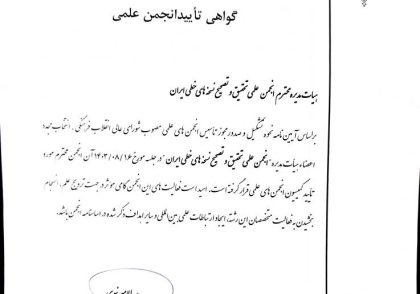 گواهی تأییدانجمن علمی
هیأت مدیره محترم انجمن علمی تحقیق و تصحیح نسخه‌های خطی ایران
براساس آیین نامه نحوه تشکیل و صدور مجوز تاسیس انجمن‌های علمی مصوب شورای عالی انقلاب فرهنگی، انتخاب مجدد
اعضاء هیأت مدیره "انجمن علمی تحقیق و تصحیح نسخه‌های خطی ایران" در جلسه مورخ ۱۴۰۲/۰۸/۱۶ آن انجمن محترم مورد
تأیید کمیسیون انجمن‌های علمی قرار گرفته است. امید است فعالیت‌های این انجمن گامی موثر در جهت ترویج علم، انسجام
بخشیدن به فعالیت متخصصان این رشته، ایجاد ارتباطات علمی بین‌المللی و سایر اهداف ذکر شده در اساسنامه انجمن باشد.